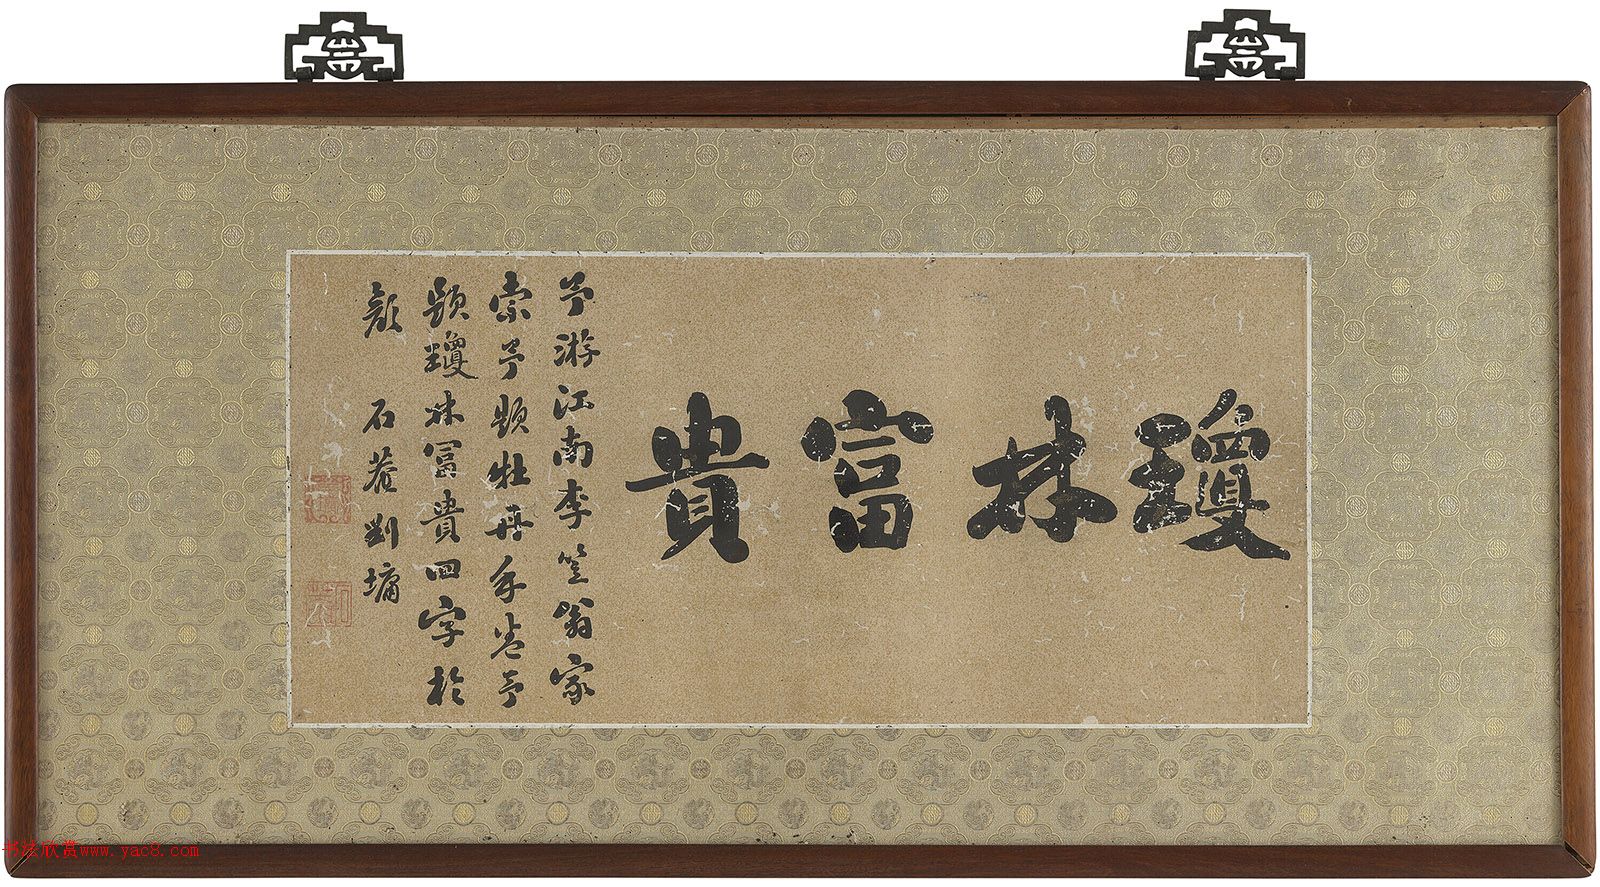 瓊林富貴
予游江南李笠翁家
索予題牡丹手卷予
題瓊林富貴四字於
顏
石菴劉墉
书法欣赏www.yac8.com